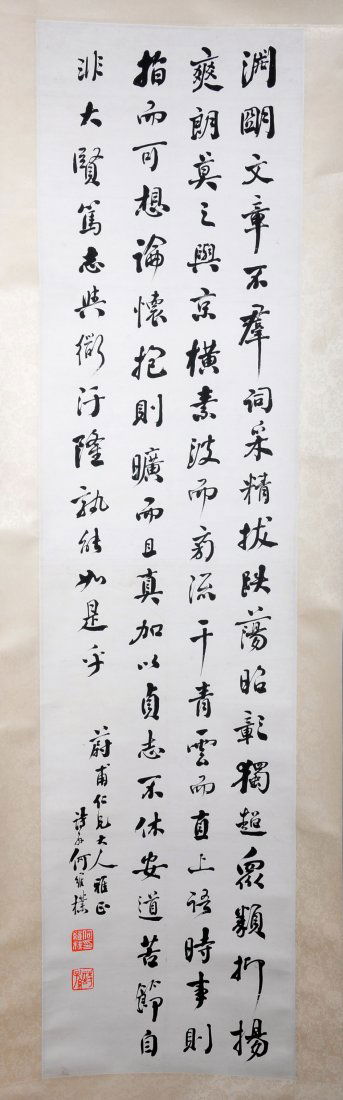 淵朙文章不羣詞采精拔跌蕩昭彰獨超眾類抑揚
爽朗莫之與京橫素波而旁流干青雲而直上語時事則
指而可想論懷抱則曠而且真加以貞志不休安道苦節自
非大賢篤志與衜汙隆孰能如是乎
蔚甫仁兄大人雅正
詩孫何維樸